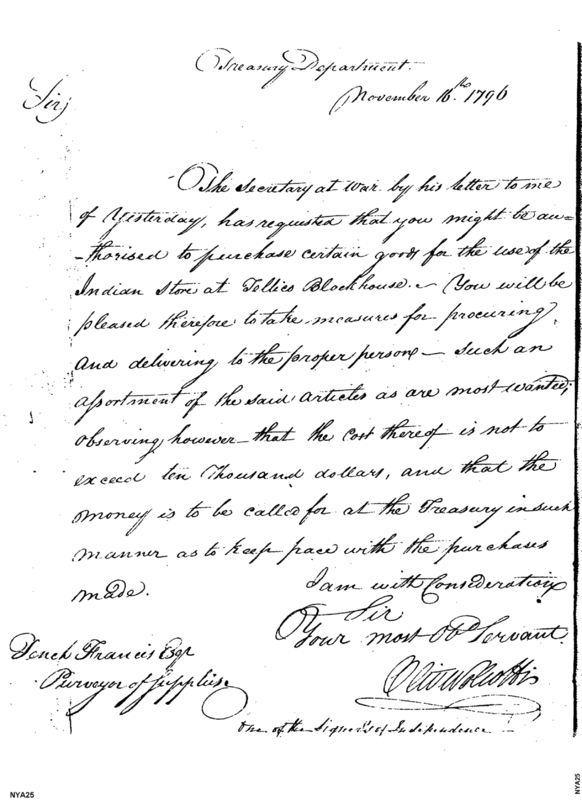 Treasury Department.
November 16.th 1796
Sir,
The Secretary at War by his letter to me
of Yesterday, has requested that you might be au=
=thorised to purchase certain goods for the use of the
Indian Store at Tellico Blockhouse. ~ You will be
pleased therefore to take measures for procuring
and delivering to the proper persons — such an
assortment of the said articles as are most wanted;
observing however — that the cost thereof is not to
exceed ten Thousand dollars, and that the
money is to be called for at the Treasury in such
manner as to keep pace with the purchases
made.
I am with Consideration
Sir
Your most Obd Servant.
Oliv Wolcott
Tench Francis Esqr
Purveyor of Supplies.
One of the Signers of Independence
NYA25
NYA25